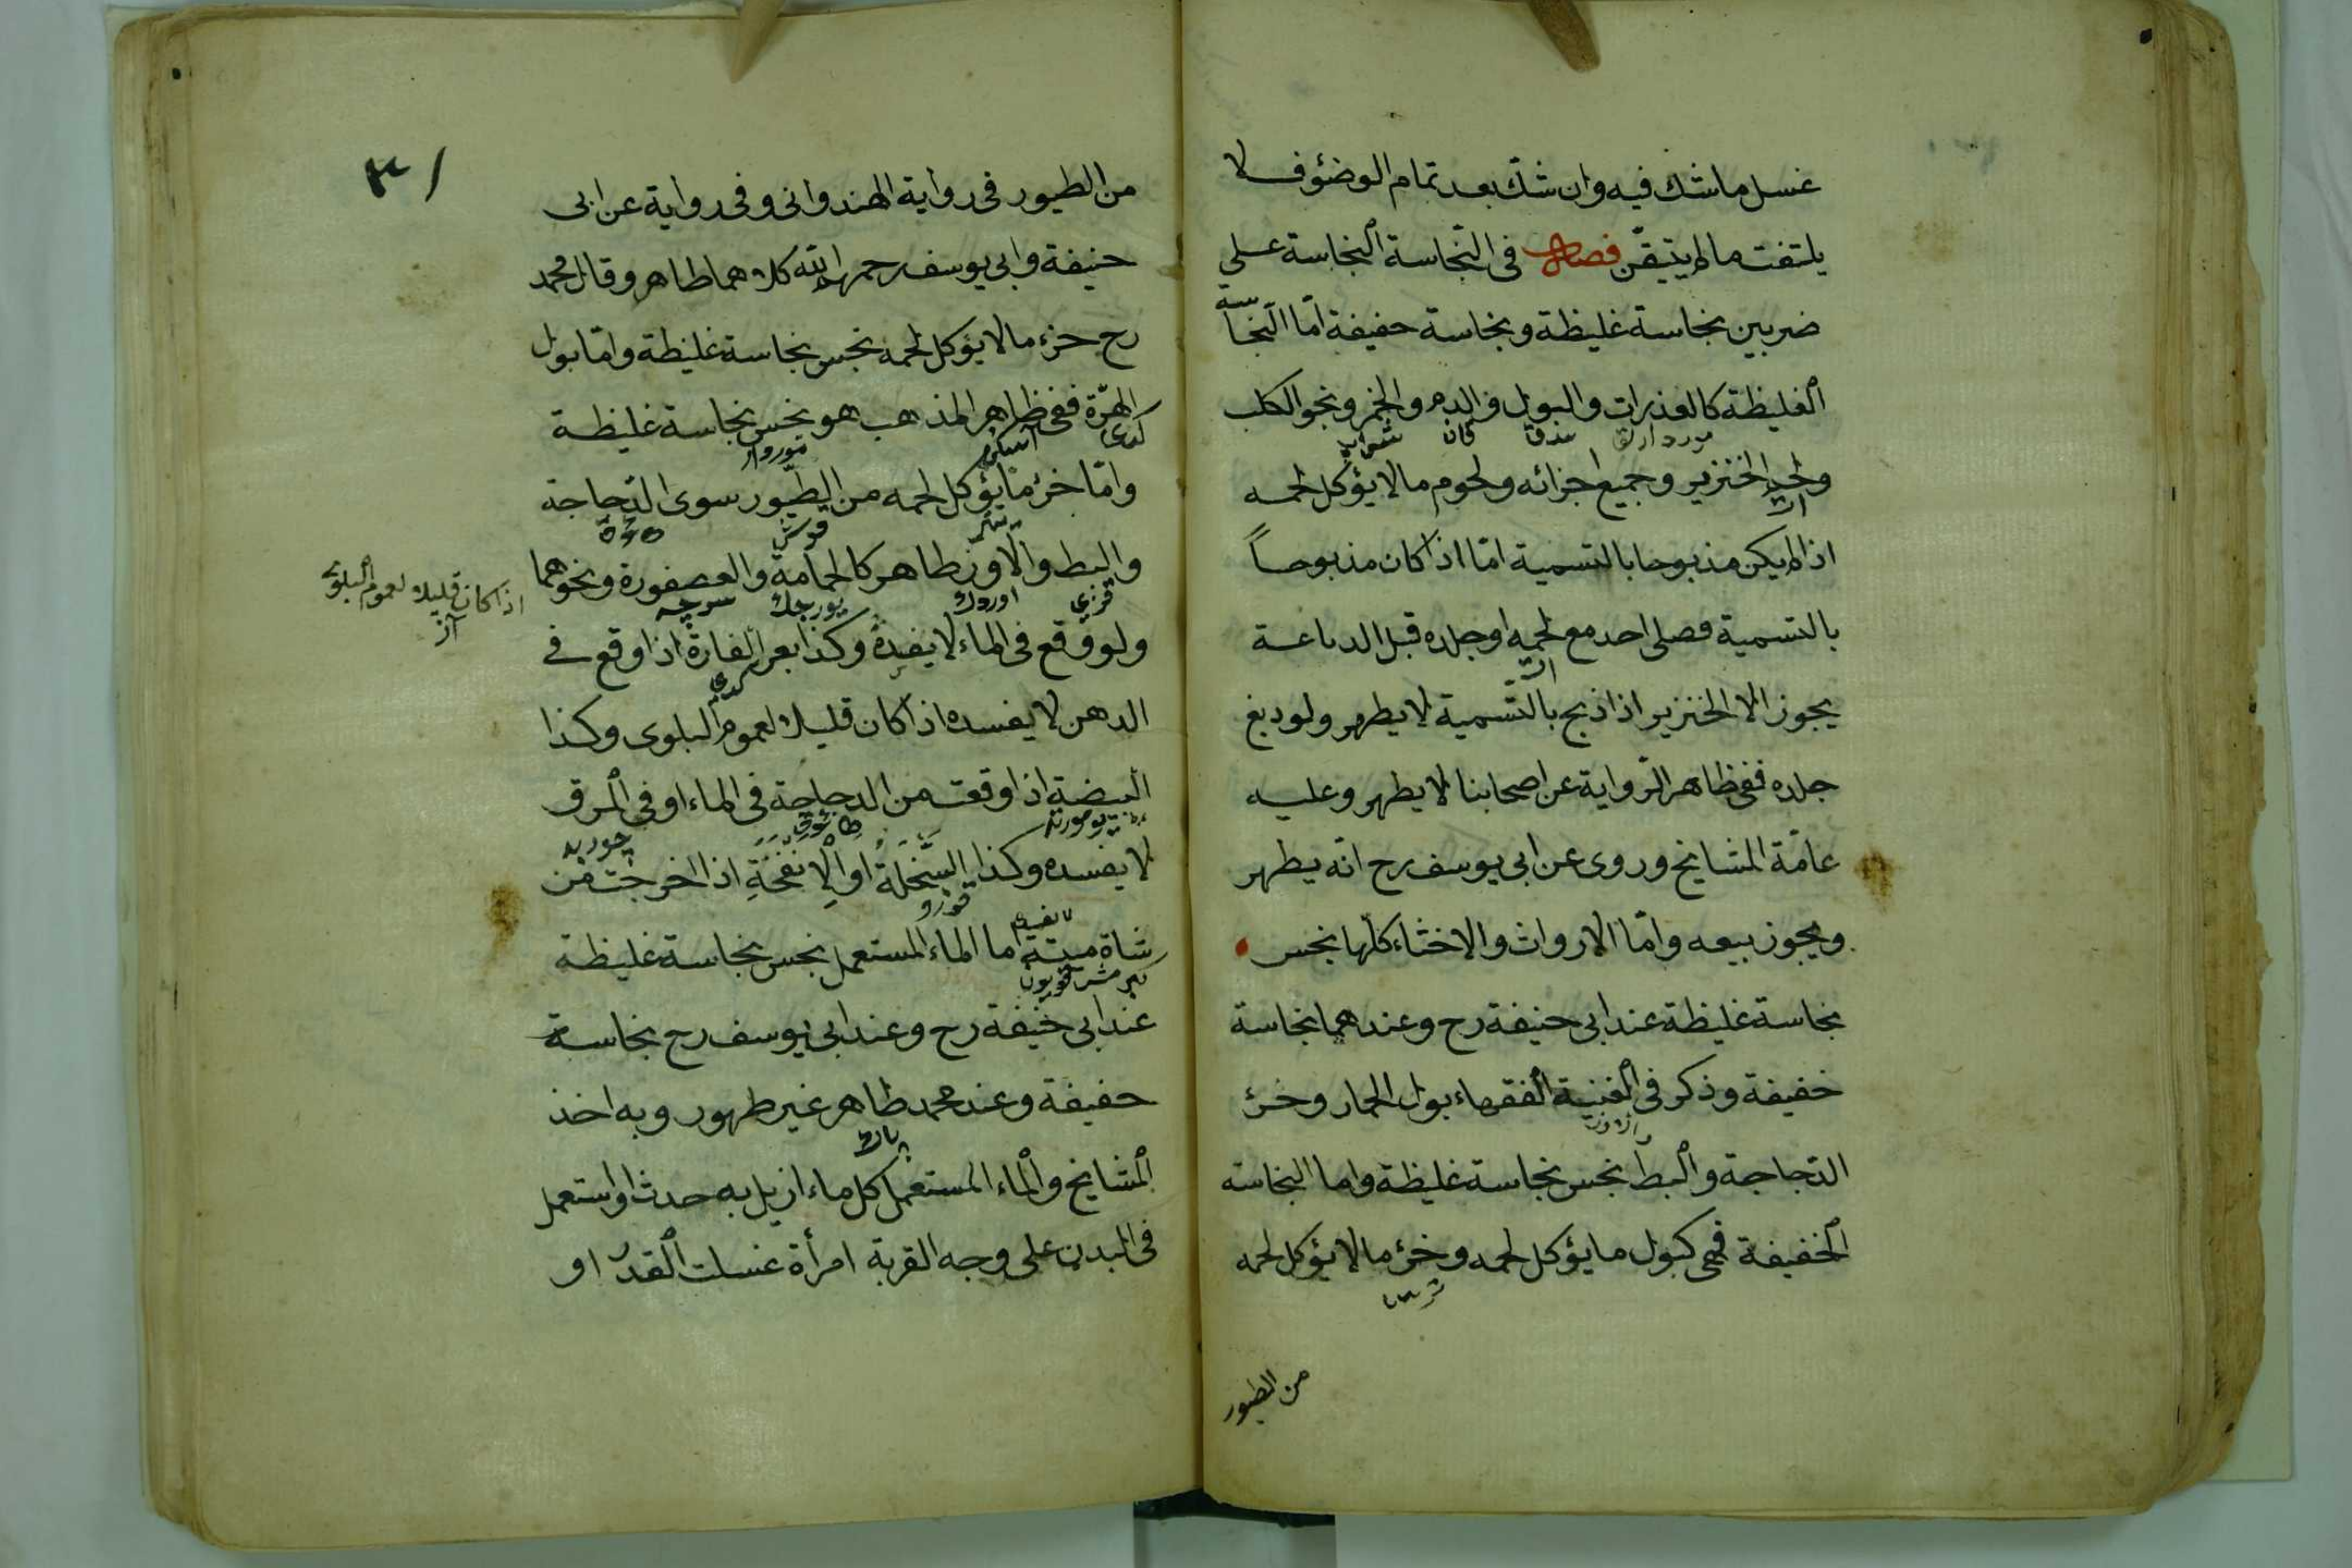 غسل ما شك فيه وان شك بعد تمام الوضؤ فلا
يلتفت ما لم يتيقّن فصل فى النّجاسة النجاسة على
ضربين نجاسة غليظة ونجاسة خفيفة امّا النجاسة
الغليظة كالعذرات والبول والدم والخمر ونجو الكلب
ولحم الخنزير وجميع اجزائه ولحوم ما لا يؤكل لحمه
اذا لم يكن مذبوحا بالتسمية امّا اذا كان مذبوحاً
بالتسمية فصلى احد مع لحمه او جلده قبل الدباغة
يجوز الا الخنزير اذا ذبح بالتسمية لا يطهر ولو دبغ
جلده ففى ظاهر الرّواية عن اصحابنا لا يطهر وعليه
عامّة المشايخ وروى عن ابى يوسف رح انّه يطهر
ويجوز بيعه وامّا الارواث والاخثاء كلّها نجس
نجاسة غليظة عند ابى حنيفة رح وعندهما نجاسة
خفيفة وذكر فى الغنية الفقهاء بول الحمار وخرئ
الدّجاجة والبط نجس نجاسة غليظة واما النجاسة
الخفيفة فهى كبول ما يؤكل لحمه وخرئ ما لا يؤكل لحمه
من الطيور
٣١
من الطيور فى رواية الهندوانى وفى رواية عن ابى
حنيفة وابى يوسف رحمهما الله كلاهما طاهر وقال محمد
رح خرء ما لا يؤكل لحمه نجس نجاسة غليظة وامّا بول
الهرّة ففى ظاهر المذهب هو نجس نجاسة غليظة
وامّا خرئ ما يؤكل لحمه من الطّيور سوى الدّجاجة
والبط والاوز طاهر كالحمامة والعصفورة ونحوهما
ولو وقع فى الماء لا يفسده وكذا بعر الفارة اذا وقع فى
اذا كان قليلا لعموم البلوى
الدهن لا يفسده اذا كان قليلا لعموم البلوى وكذا
البيضة اذا وقعت من الدجاجة فى الماء او فى المرق
لا يفسده وكذا السَّخلة او الإنفحة اذا اخرجت من
شاة ميتة اما الماء المستعمل نجس نجاسة غليظة
عند ابى حنيفة رح وعند ابى يوسف رح نجاسة
خفيفة وعند محمد طاهر غير طهور وبه اخذ
المشايخ والماء المستعمل كل ماء ازيل به حدث او استعمل
فى البدن على وجه القربة امرأة غسلت القدر او